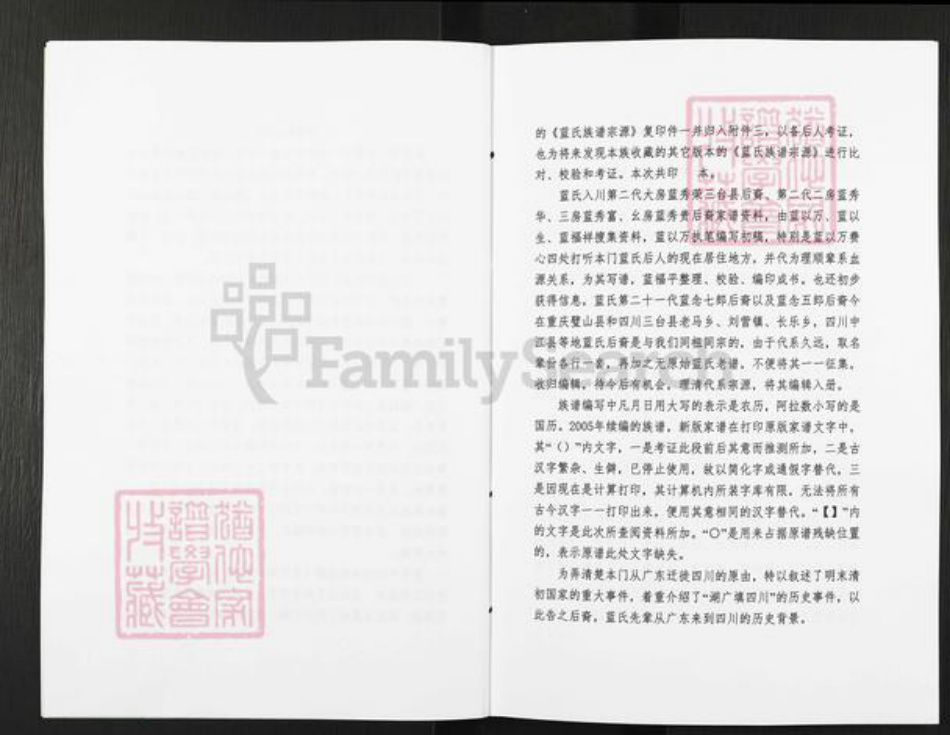 的《蓝氏族谱宗源》复印件一并归入附件三，以备后人考证，
也为将来发现本族收藏的其它版本的《蓝氏族谱宗源》进行比
对、校验和考证。本次共印　本。
蓝氏入川第二代大房蓝秀荣三台县后裔、第二代二房蓝秀
华、三房蓝秀富、幺房蓝秀贵后裔家谱资料，由蓝以万、蓝以
生、蓝福祥搜集资料，蓝以万执笔编写初稿，特别是蓝以万费
心四处打听本门蓝氏后人的现在居住地方，并代为理顺辈系血
源关系，为其写谱，蓝福平整理、校验、编印成书。也还初步
获得信息，蓝氏第二十一代蓝念七郎后裔以及蓝念五郎后裔今
在重庆璧山县和四川三台县老马乡、刘营镇、长乐乡，四川中
江县等地蓝氏后裔是与我们同祖同宗的，由于代系久远，取名
辈份各行一套，再加之无原始蓝氏老谱，不便将其一一征集，
收归编辑，待今后有机会，理清代系宗源，将其编辑入册。
族谱编写中凡月日用大写的表示是农历，阿拉数小写的是
国历。2005年续编的族谱，新版家谱在打印原版家谱文字中，
其“（）”内文字，一是考证此段前后其意而推测所加，二是古
汉字繁杂、生僻，已停止使用，故以简化字或通假字替代，三
是因现在是计算打印，其计算机内所装字库有限，无法将所有
古今汉字一一打印出来，便用其意相同的汉字替代。“【】”内
的文字是此次所查阅资料所加。“○”是用来占据原谱残缺位置
的，表示原谱此处文字缺失。
为弄清楚本门从广东迁徙四川的原由，特以叙述了明末清
初国家的重大事件，着重介绍了“湖广填四川”的历史事件，以
此告之后裔，蓝氏先辈从广东来到四川的历史背景。
FamilySearch